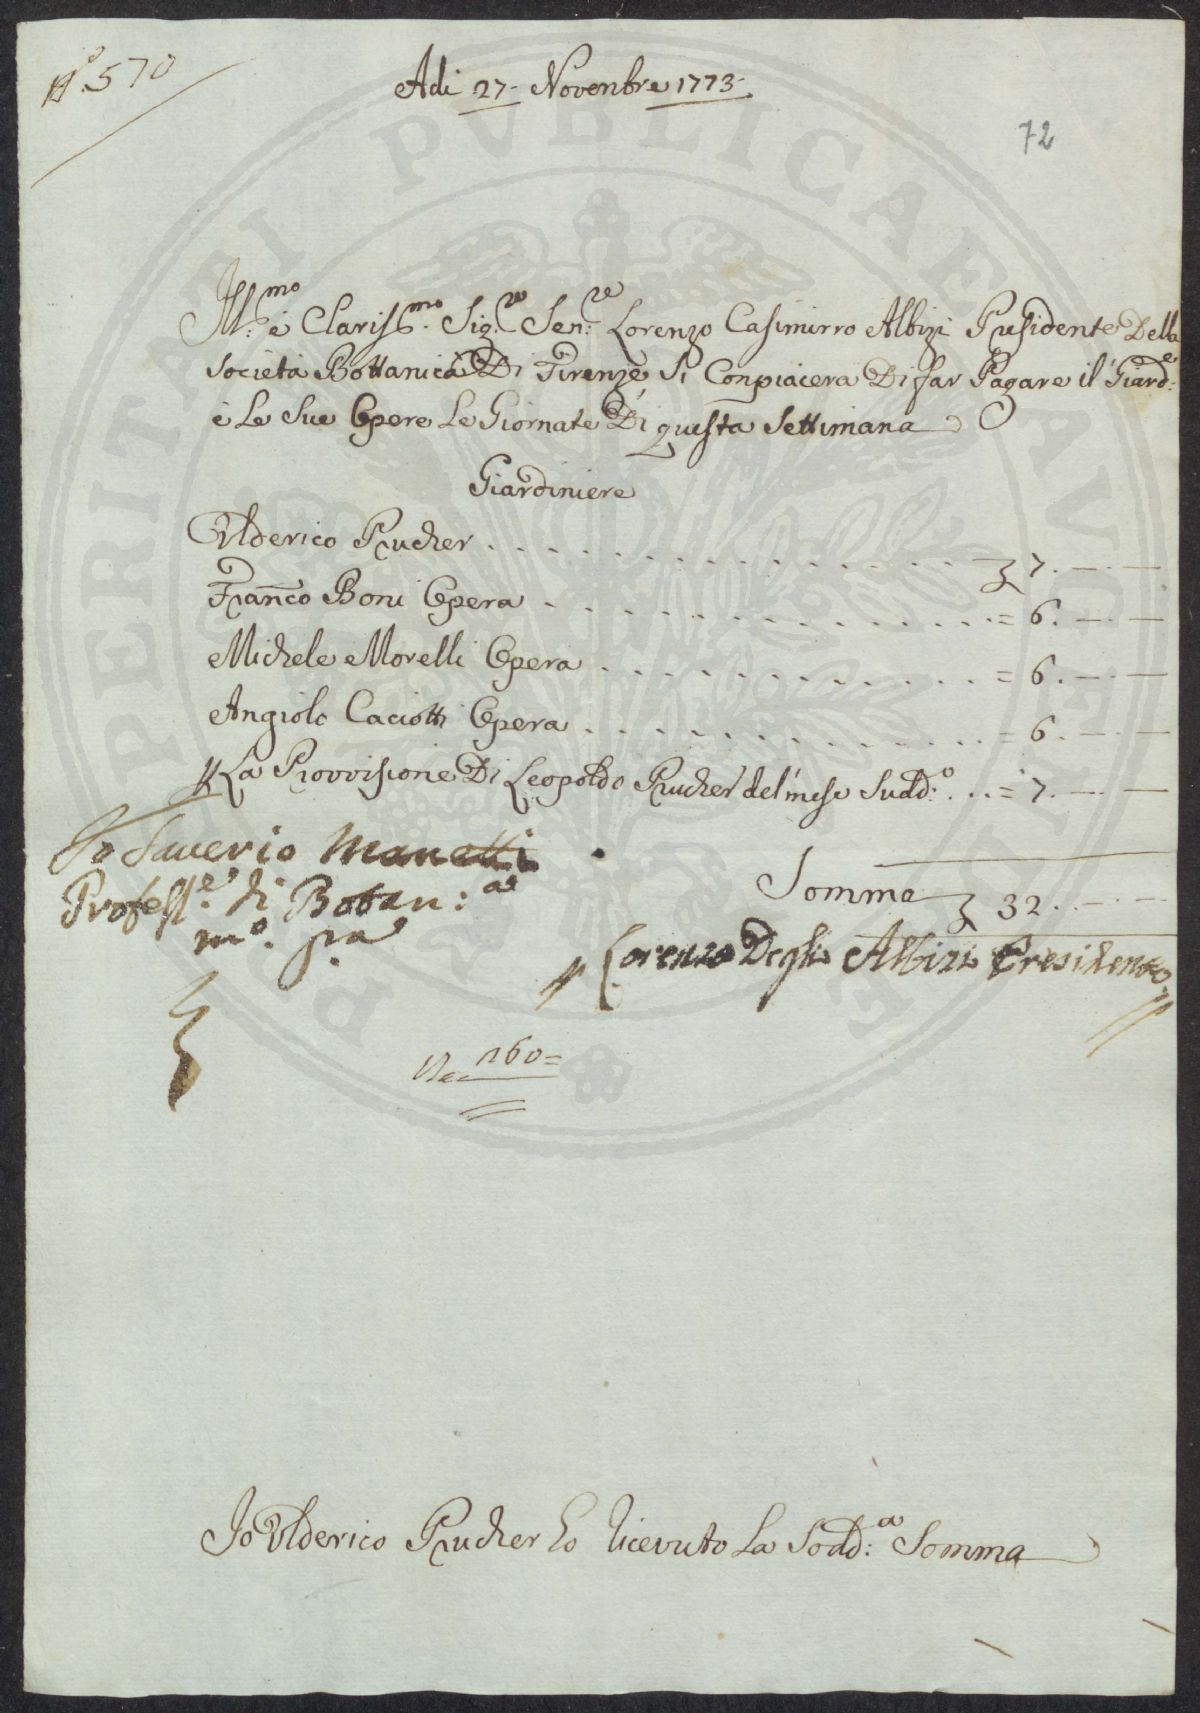 N.º 570
Adi 27 Novenbre 1773
72
Ill:mo é Clariss:mo Sig:re Sen:re Lorenzo Casimirro Albizi Presidente Della
Società Bottanica Di Firenze Si Conpiacera Di far Pagare il Giard:e
è Le Sue Opere Le Giornate Di questa Settimana
Giardiniere
Ulderico Prucher . . . . . . . . . . . . . . . 7. — —
Franco Boni Opera . . . . . . . . . . . . . = 6. — —
Michele Morelli Opera . . . . . . . . . . . = 6. — —
Angiolo Caciotti Opera . . . . . . . . . . . = 6. — —
La Provvisione Di Leopoldo Prucher del mese Sudd:o . . . = 7. — —
Io Saverio Manetti
Profess:re di Botan:ca
m:o p:a
Somma 32. — —
Lorenzo Degli Albizi Presidente
160=
Io Ulderico Prucher ho ricevuto La Sodd:a Somma
PERITATI PVBLICAE AVGE